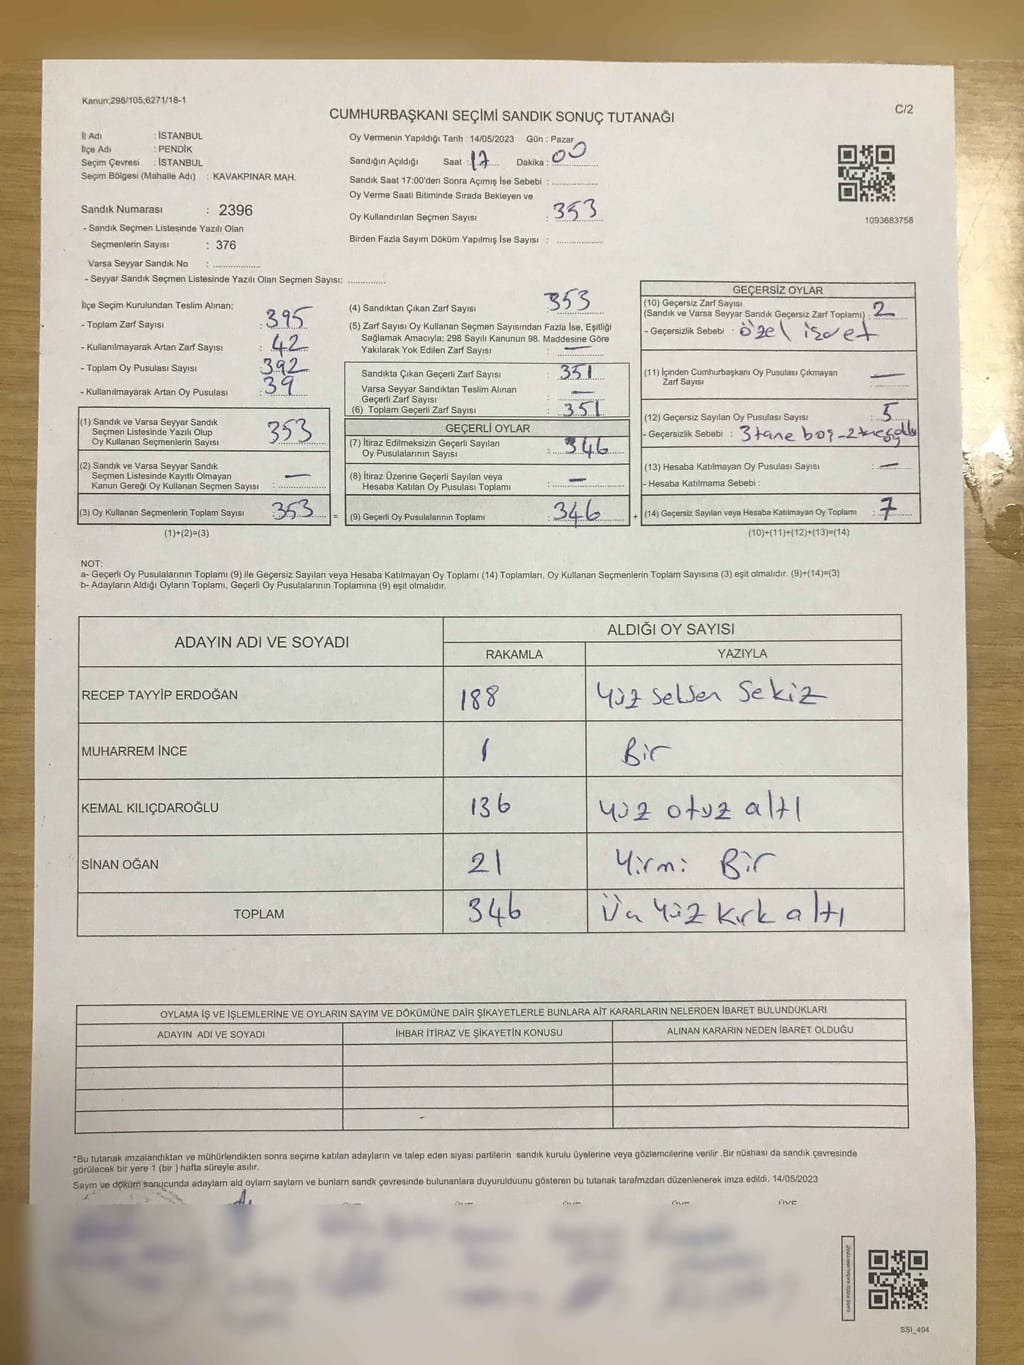 Kanun;298/105;6271/18-1
C/2
CUMHURBAŞKANI SEÇİMİ SANDIK SONUÇ TUTANAĞI
İl Adı : İSTANBUL
İlçe Adı : PENDİK
Seçim Çevresi : İSTANBUL
Seçim Bölgesi (Mahalle Adı) : KAVAKPINAR MAH.
Sandık Numarası : 2396
- Sandık Seçmen Listesinde Yazılı Olan
Seçmenlerin Sayısı : 376
Varsa Seyyar Sandık No :
- Seyyar Sandık Seçmen Listesinde Yazılı Olan Seçmen Sayısı:
Oy Vermenin Yapıldığı Tarih : 14/05/2023 Gün : Pazar
Sandığın Açıldığı Saat : 17 Dakika : 00
Sandık Saat 17:00'den Sonra Açımış İse Sebebi :
Oy Verme Saati Bitiminde Sırada Bekleyen ve
Oy Kullandırılan Seçmen Sayısı : 353
Birden Fazla Sayım Döküm Yapılmış İse Sayısı :
1093683758
İlçe Seçim Kurulundan Teslim Alınan;
- Toplam Zarf Sayısı : 395
- Kullanılmayarak Artan Zarf Sayısı : 42
- Toplam Oy Pusulası Sayısı : 392
- Kullanılmayarak Artan Oy Pusulası : 39
(1) Sandık ve Varsa Seyyar Sandık
Seçmen Listesinde Yazılı Olup
Oy Kullanan Seçmenlerin Sayısı 353
(2) Sandık ve Varsa Seyyar Sandık
Seçmen Listesinde Kayıtlı Olmayan
Kanun Gereği Oy Kullanan Seçmen Sayısı : —
(3) Oy Kullanan Seçmenlerin Toplam Sayısı : 353 =
(1)+(2)=(3)
(4) Sandıktan Çıkan Zarf Sayısı : 353
(5) Zarf Sayısı Oy Kullanan Seçmen Sayısından Fazla İse, Eşitliği
Sağlamak Amacıyla; 298 Sayılı Kanunun 98. Maddesine Göre
Yakılarak Yok Edilen Zarf Sayısı : —
Sandıkta Çıkan Geçerli Zarf Sayısı : 351
Varsa Seyyar Sandıktan Teslim Alınan
Geçerli Zarf Sayısı : —
(6) Toplam Geçerli Zarf Sayısı : 351
GEÇERLİ OYLAR
(7) İtiraz Edilmeksizin Geçerli Sayılan
Oy Pusulalarının Sayısı : 346
(8) İtiraz Üzerine Geçerli Sayılan veya
Hesaba Katılan Oy Pusulası Toplamı : —
(9) Geçerli Oy Pusulalarının Toplamı : 346 +
GEÇERSİZ OYLAR
(10) Geçersiz Zarf Sayısı
(Sandık ve Varsa Seyyar Sandık Geçersiz Zarf Toplamı) : 2
- Geçersizlik Sebebi : özel işaret
(11) İçinden Cumhurbaşkanı Oy Pusulası Çıkmayan
Zarf Sayısı : —
(12) Geçersiz Sayılan Oy Pusulası Sayısı : 5
- Geçersizlik Sebebi : 3 tane boş - 2 tane
(13) Hesaba Katılmayan Oy Pusulası Sayısı : —
- Hesaba Katılmama Sebebi :
(14) Geçersiz Sayılan veya Hesaba Katılmayan Oy Toplamı : 7
(10)+(11)+(12)+(13)=(14)
NOT:
a- Geçerli Oy Pusulalarının Toplamı (9) ile Geçersiz Sayılan veya Hesaba Katılmayan Oy Toplamı (14) Toplamları, Oy Kullanan Seçmenlerin Toplam Sayısına (3) eşit olmalıdır. (9)+(14)=(3)
b- Adayların Aldığı Oyların Toplamı, Geçerli Oy Pusulalarının Toplamına (9) eşit olmalıdır.
ADAYIN ADI VE SOYADI ALDIĞI OY SAYISI
RAKAMLA YAZIYLA
RECEP TAYYİP ERDOĞAN 188 Yüz seksen sekiz
MUHARREM İNCE 1 Bir
KEMAL KILIÇDAROĞLU 136 Yüz otuz altı
SİNAN OĞAN 21 Yirmi Bir
TOPLAM 346 Üç Yüz kırk altı
OYLAMA İŞ VE İŞLEMLERİNE VE OYLARIN SAYIM VE DÖKÜMÜNE DAİR ŞİKAYETLERLE BUNLARA AİT KARARLARIN NELERDEN İBARET BULUNDUKLARI
ADAYIN ADI VE SOYADI İHBAR İTİRAZ VE ŞİKAYETİN KONUSU ALINAN KARARIN NEDEN İBARET OLDUĞU
*Bu tutanak imzalandıktan ve mühürlendikten sonra seçime katılan adayların ve talep eden siyasi partilerin sandık kurulu üyelerine veya gözlemcilerine verilir .Bir nüshası da sandık çevresinde
görülecek bir yere 1 (bir ) hafta süreyle asılır.
Sayım ve döküm sonucunda adaylam ald oylarn saylarn ve bunlarn sandk çevresinde bulunanlara duyurulduunu gösteren bu tutanak tarafmzdan düzenlenerek imza edildi. 14/05/2023
SSI_404